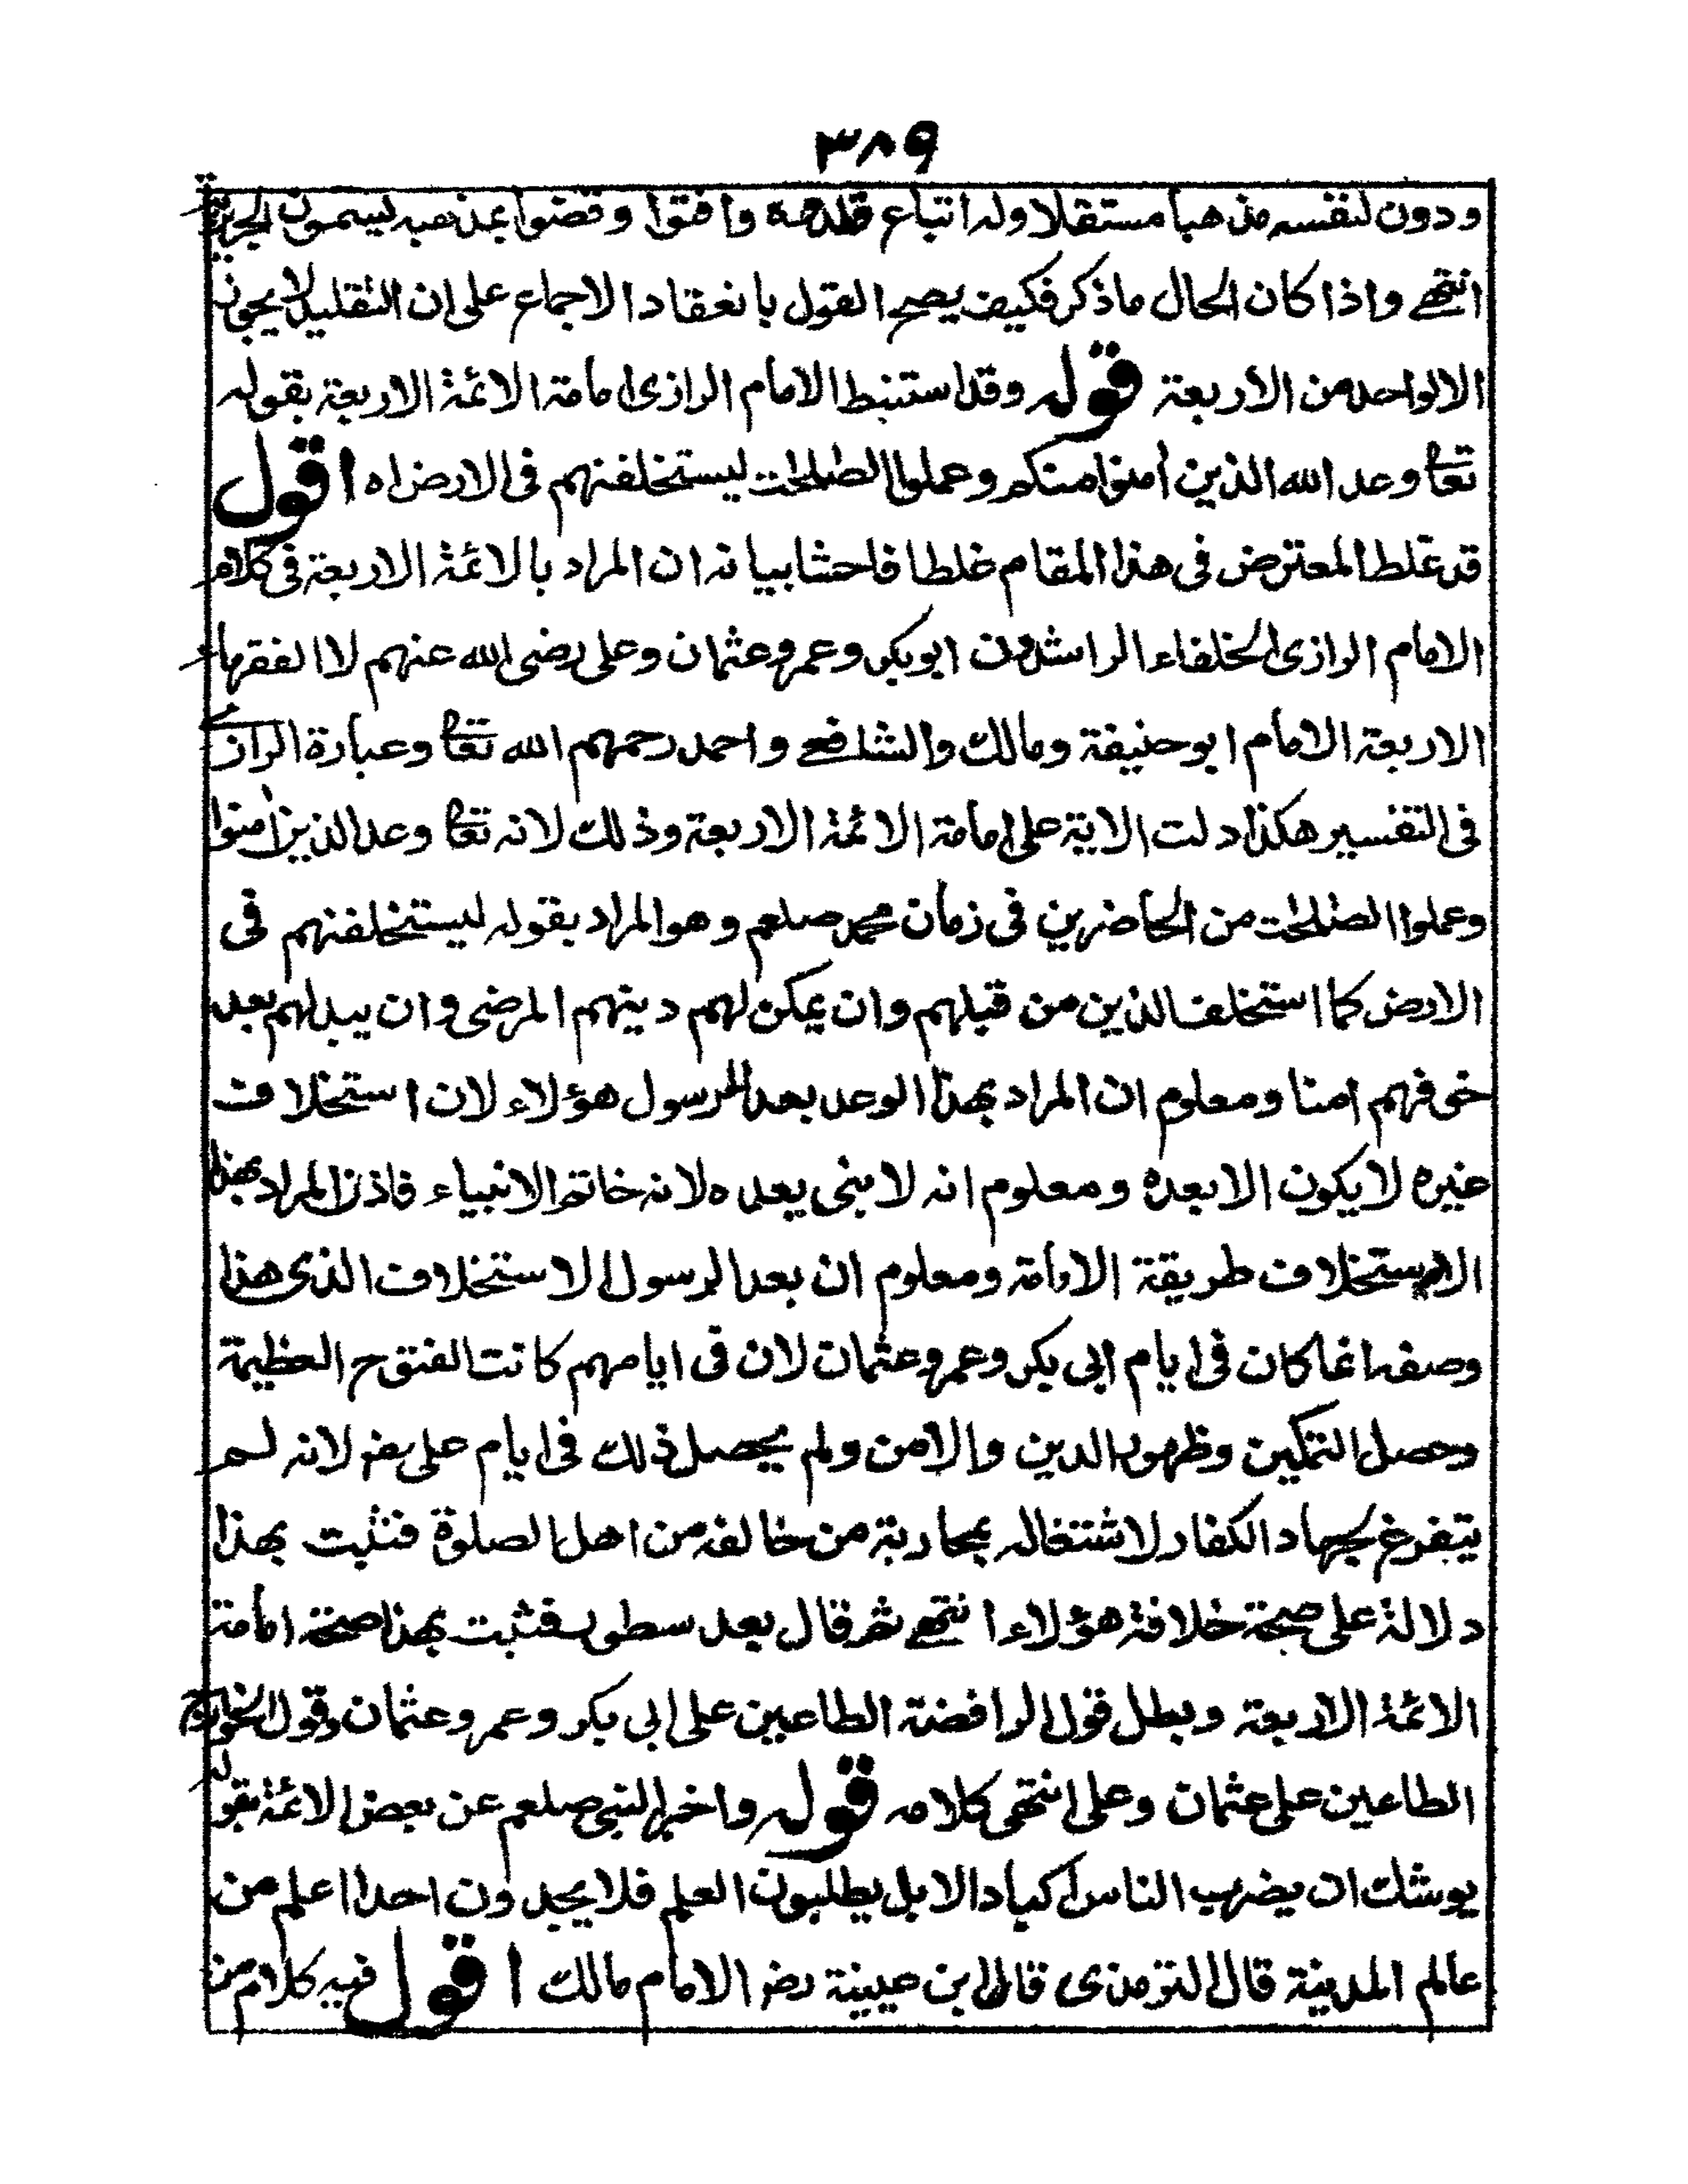 ٣٨٩
ودون لنفسه مذهبا مستقلا وله اتباع قلدوه وافتوا وقضوا بمذهبه يسمون الجريرية
انتهے واذا كان الحال ما ذكر فكيف يصح القول بانعقاد الاجماع على ان التقليد لا يجوز
الا لواحد من الأربعة قوله وقد استنبط الامام الرازى امامة الائمة الاربعة بقوله
تعا وعد الله الذين أمنوا منكم وعملوا الصلحت ليستخلفنهم فى الارض اه اقول
قد غلط المعترض فى هذا المقام غلطا فاحشا بيانه ان المراد بالائمة الاربعة فى كلام
الامام الرازى الخلفاء الراشدون ابوبكر وعمر وعثمان وعلى رضى الله عنهم لا الفقهاء
الاربعة الامام ابوحنيفة ومالك والشافعے واحمد رحمهم الله تعا وعبارة الرازى
فى التفسير هكذا دلت الاية على امامة الائمة الاربعة وذلك لانه تعا وعد الذين أمنوا
وعملوا الصلحت من الحاضرين فى زمان محمد صلعم وهو المراد بقوله ليستخلفنهم فى
الارض كما استخلف الذين من قبلهم وان يمكن لهم دينهم المرضى وان يبدلهم بعد
خوفهم امنا ومعلوم ان المراد بهذا الوعد بعد الرسول هؤلاء لان استخلاف
غيره لا يكون الا بعده ومعلوم انه لا نبى بعده لانه خاتم الانبياء فاذن المراد بهذا
الاستخلاف طريقة الامامة ومعلوم ان بعد الرسول الاستخلاف الذى هذا
وصفه انما كان فى ايام ابى بكر وعمر وعثمان لان فى ايامهم كانت الفتوح العظيمة
وحصل التمكين وظهور الدين والامن ولم يحصل ذلك فى ايام على رضـ لانه لم
يتفرغ لجهاد الكفار لاشتغاله بمحاربة من خالفه من اهل الصلوة فثبت بهذا
دلالة على صحة خلافة هؤلاء انتهے ثم قال بعد سطور فثبت بهذا صحة امامة
الائمة الاربعة وبطل قول الرافضة الطاعين على ابى بكر وعمر وعثمان وقول الخوارج
الطاعين على عثمان وعلى انتهى كلامه قوله واخبر النبى صلعم عن بعض الائمة بقوله
يوشك ان يضرب الناس اكباد الابل يطلبون العلم فلا يجدون احدا اعلم من
عالم المدينة قال الترمذى قال ابن عيينة رضـ الامام مالك اقول فيه كلام من